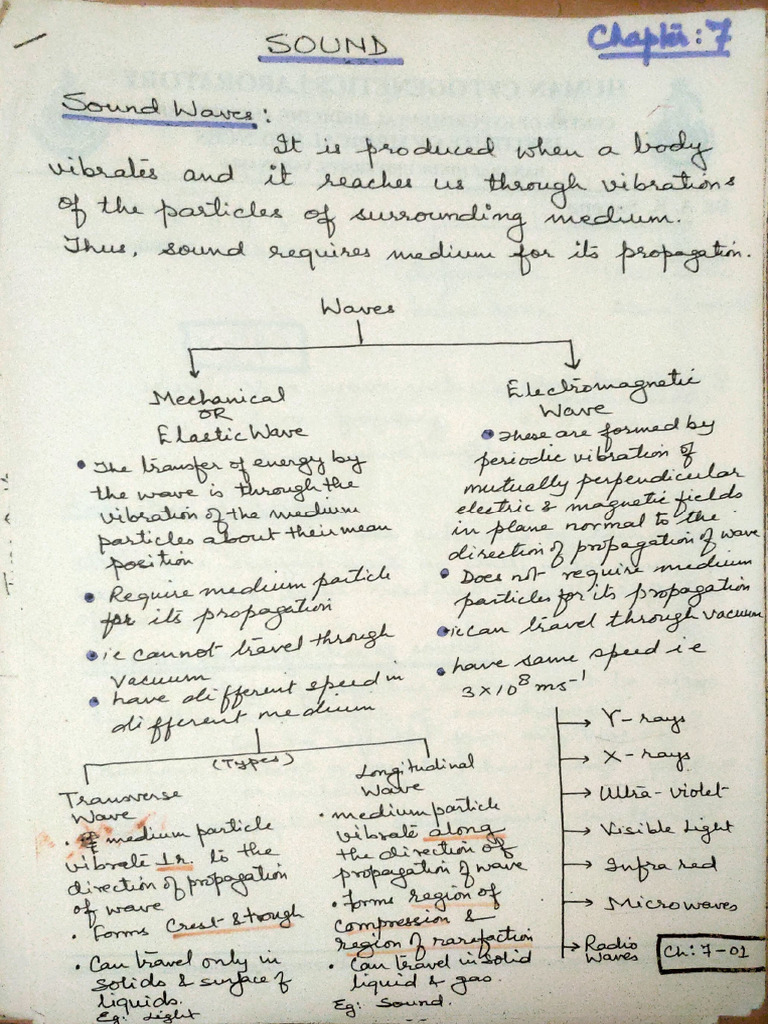 SOUND
Chapter: 7
Sound Waves:
It is produced when a body
vibrates and it reaches us through vibrations
of the particles of surrounding medium.
Thus, sound requires medium for its propagation.
Waves
Mechanical
OR
Elastic Wave
• The transfer of energy by
the wave is through the
vibration of the medium
particles about their mean
position
• Require medium particle
for its propagation
• ie cannot travel through
vacuum
• have different speed in
different medium
Electromagnetic
Wave
• These are formed by
periodic vibration of
mutually perpendicular
electric & magnetic fields
in plane normal to the
direction of propagation of wave
• Does not require medium
particles for its propagation
• ie can travel through vacuum
• have same speed ie
3×10⁸ ms⁻¹
(Types)
Transverse
Wave
• medium particle
vibrate ⊥r. to the
direction of propagation
of wave
• Forms Crest & trough
• Can travel only in
solids & surface of
liquids.
Eg: Light
Longitudinal
Wave
• medium particle
vibrate along
the direction of
propagation of wave
• Forms region of
compression &
region of rarefaction
• Can travel in solid
liquid & gas.
Eg: Sound.
→ γ-rays
→ X-rays
→ Ultra-violet
→ Visible Light
→ Infra red
→ Microwaves
→ Radio
Waves
Ch: 7-01